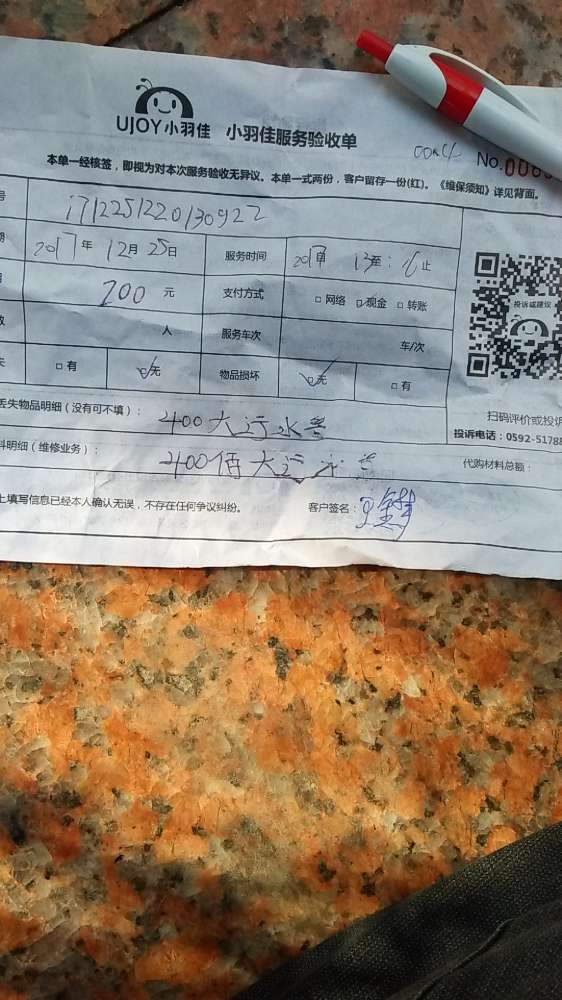 UJOY小羽佳 小羽佳服务验收单
No.000
本单一经核签，即视为对本次服务验收无异议。本单一式两份，客户留存一份(红)。《维保须知》详见背面。
号 1712251220130922
期 2017年 12月 25日 服务时间 13至: 16止
200 元 支付方式 □网络 ☑现金 □转账
数 人 服务车次 车/次
失 □有 ☑无 物品损坏 ☑无 □有
投诉或建议
扫码评价或投诉
投诉电话：0592-51788
丢失物品明细（没有可不填）： 400大污水管
料明细（维修业务）： 400佰大污水管 代购材料总额：
上填写信息已经本人确认无误，不存在任何争议纠纷。 客户签名：